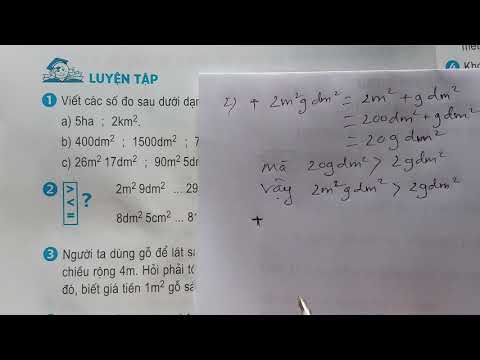 LUYỆN TẬP
1 Viết các số đo sau dưới dạn
a) 5ha ; 2km².
b) 400dm² ; 1500dm² ; 7
c) 26m² 17dm² ; 90m² 5dm
2 > < = ? 2m² 9dm² ... 29
8dm² 5cm² ... 81
3 Người ta dùng gỗ để lát sà
chiều rộng 4m. Hỏi phải tố
đó, biết giá tiền 1m² gỗ sà
4 Kho
2) + 2m² 9dm² = 2m² + 9dm²
= 200dm² + 9dm²
= 209dm²
mà 209dm² > 29dm²
Vậy 2m² 9dm² > 29dm²
+